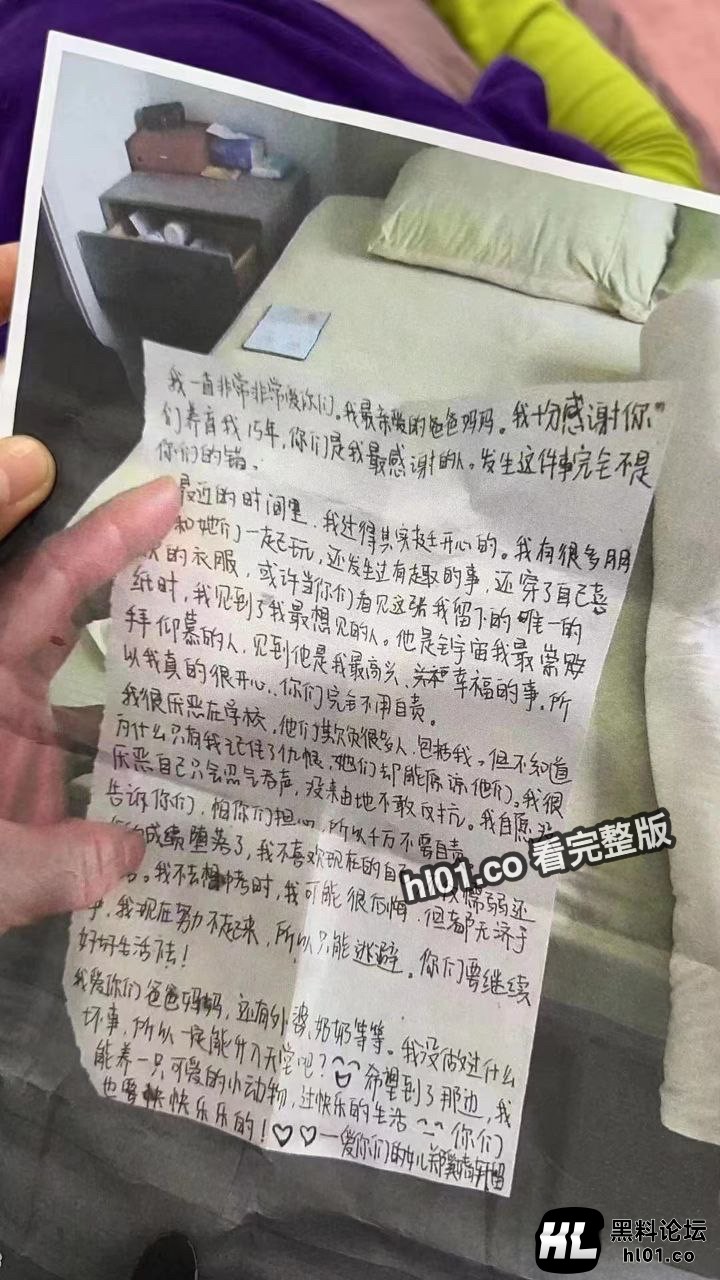 我一直非常非常爱你们。我最亲爱的爸爸妈妈。我十分感谢你
们养育我15年,你们是我最感谢的人。发生这件事完全不是
你们的错。
最近的时间里,我过得其实挺开心的。我有很多朋
和她们一起玩,还发生过有趣的事,还穿了自己喜
的衣服,或许当你们看见这张我留下的唯一的
纸时,我见到了我最想见的人。他是全宇宙我最崇
拜仰慕的人,见到他是我最高兴、幸福的事。所
以我真的很开心,你们完全不用自责。
我很厌恶在学校,他们欺负很多人,包括我。但不知道
为什么只有我记住了仇恨,她们却能原谅他们。我很
厌恶自己只会忍气吞声,没来由地不敢反抗。我自愿
告诉你们,怕你们担心,所以千万不要自责
成绩堕落了,我不喜欢现在的自己
hl01.co 看完整版
懦弱还
。我不去想中考时,我可能很后悔,但都无济于
事,我现在努力不起来,所以只能逃避。你们要继续
好好生活下去!
我爱你们爸爸妈妈,还有外婆、奶奶等等。我没做过什么
坏事,所以一定能升入天堂吧?希望到了那边,我
能养一只可爱的小动物,过快乐的生活 你们
也要快快乐乐的!♡♡
—爱你们的女儿
HL 黑料论坛
hl01.co